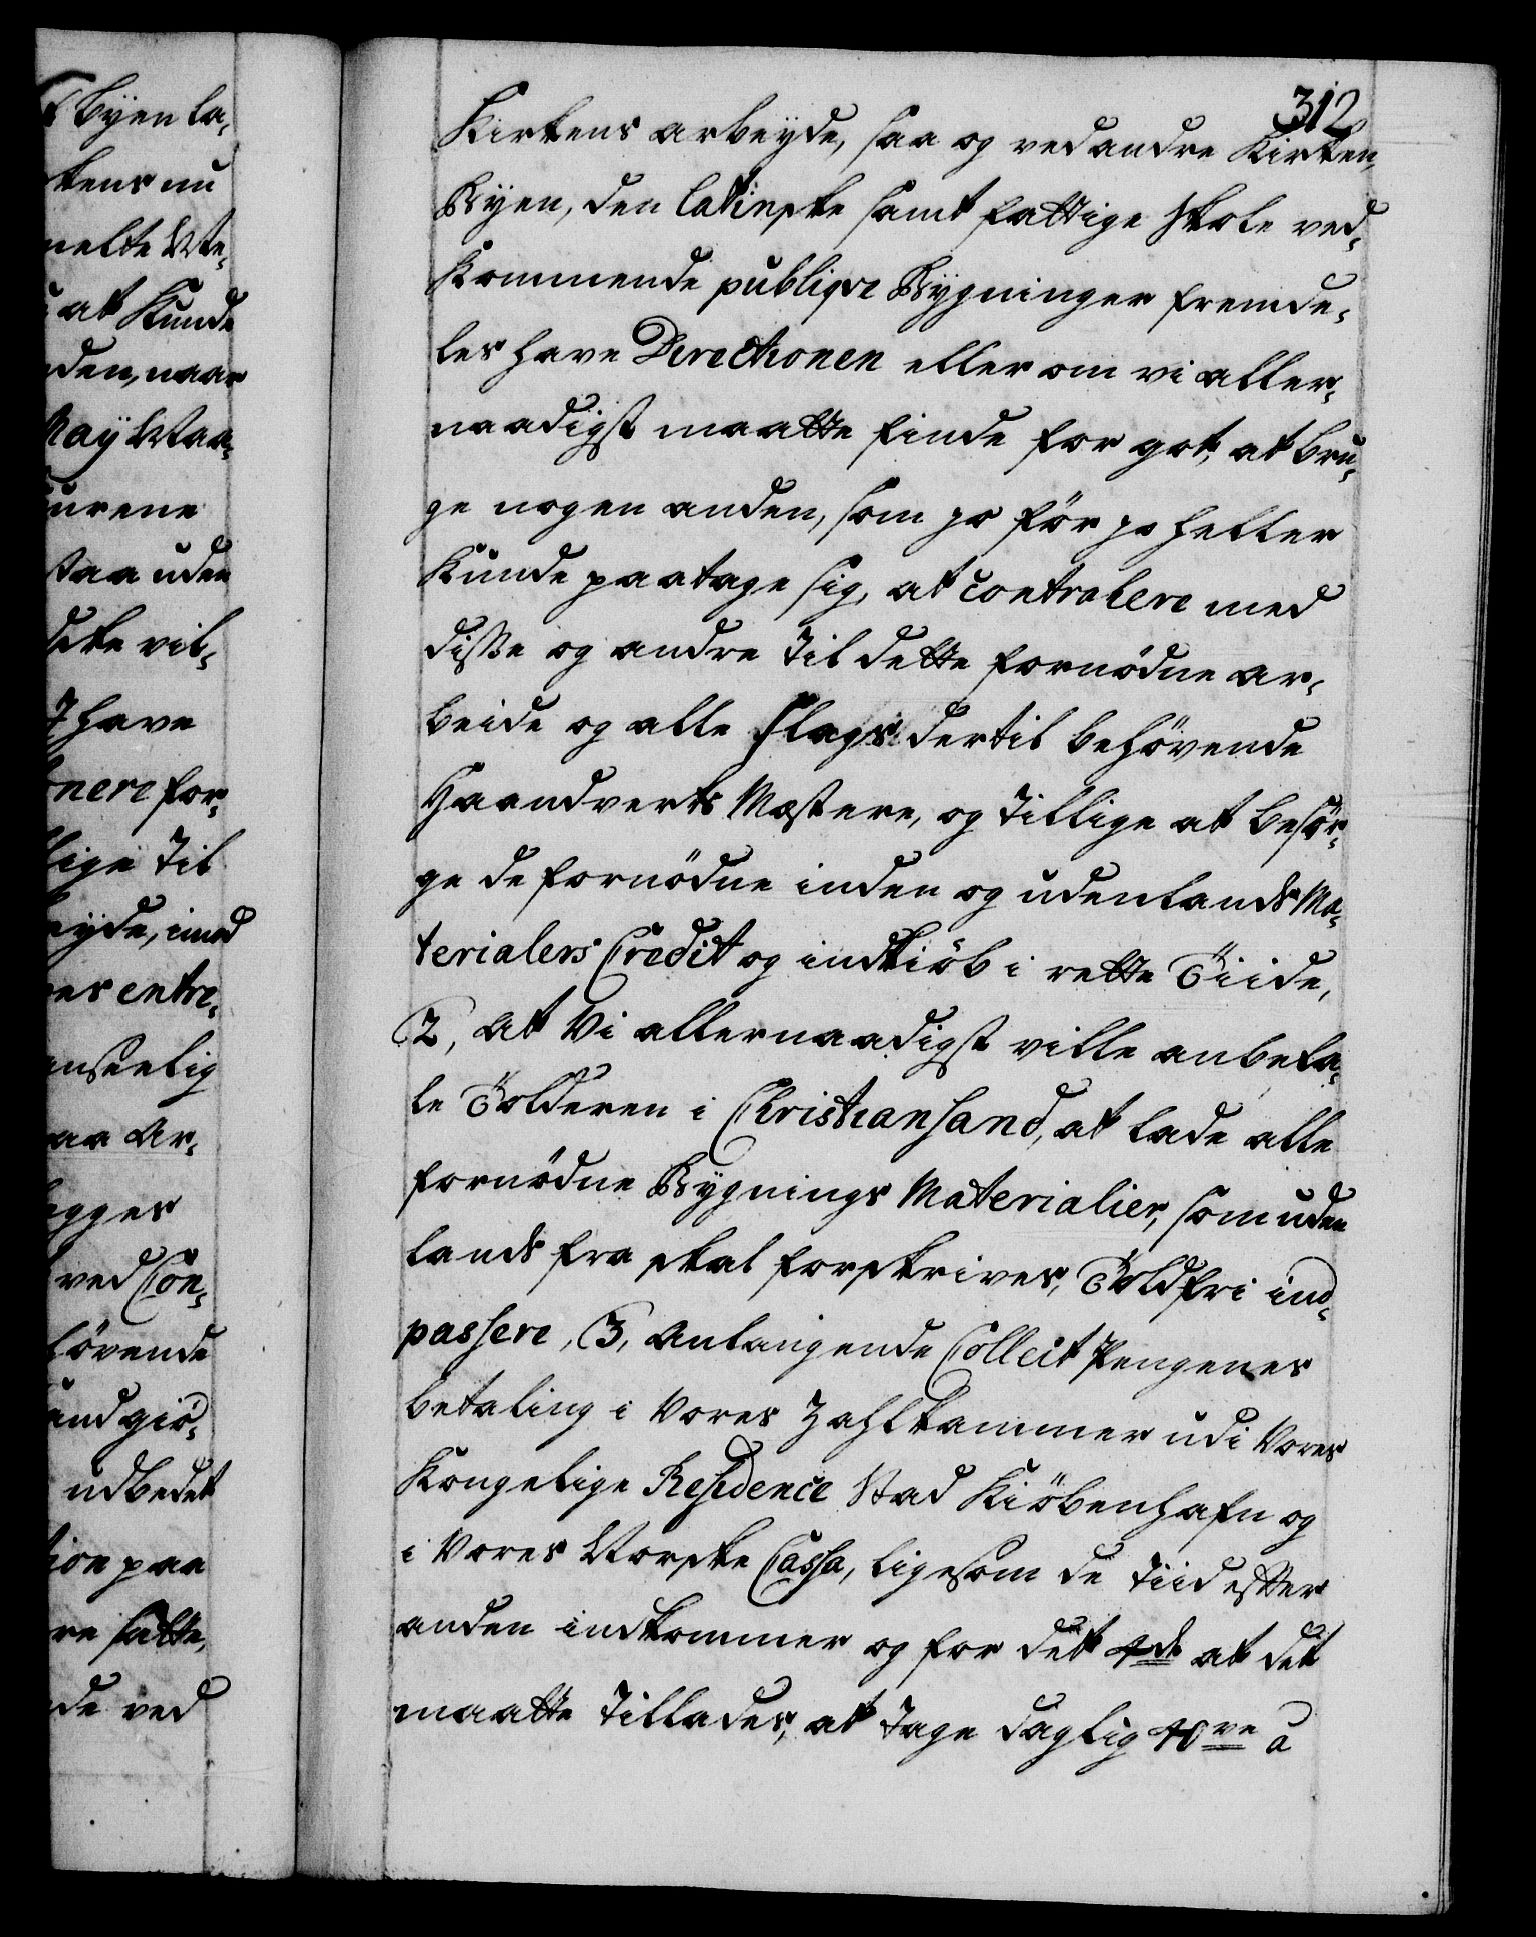 312
Kirkens arbeyde, saa og ved andre Kirken,
Byen, den latinske samt fattige Skole ved-
kommende publiqve Bygninger fremde-
les have Directionen eller om vi aller-
naadigst maatte finde for got, at bru-
ge nogen anden, som jo för jo heller
kunde paatage sig, at contrahere med
disse og andre til dette fornödne ar-
beide og alle Slags dertil behövende
Haandverks Mæstere, og tillige at besör-
ge de fornödne inden og udenlands Ma-
terialers Credit og indkiöb i rette Tiide,
2, at Vi allernaadigst ville anbefa-
le Tolderen i Christiansand, at lade alle
fornödne Bygnings Materialier, som uden
lands fra skal forskrives, Toldfri ind-
passere, 3, Anlangende Collect Pengenes
betaling i Vores Zahlkammer udi Vores
Kongelige Residence Stad Kiöbenhafn og
i Vores Norske Cassa, ligesom de tiid efter
anden indkommer og for det 4de at det
maatte tillades, at tage daglig 40ve à
t byen la-
kens nu
melte
at kunde
den, naar
urene
aa uden
vil-
have
nere for-
lige til
eyde, imod
es entre-
anseelig
aa Ar-
egges
ved Con-
hövende
and giö-
udbedet
tion paa
re satte,
de ved